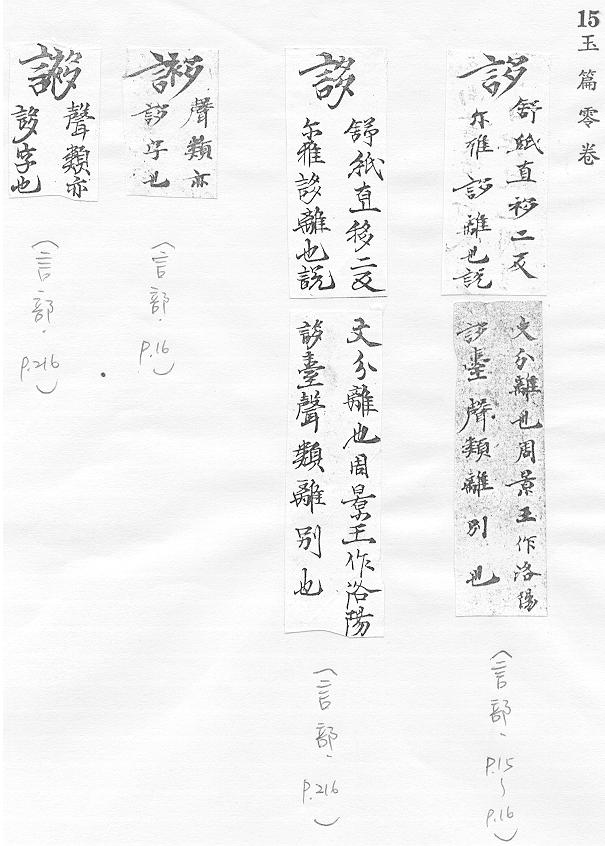 15玉篇零卷
誃
舒紙直移二反
尒雅誃離也說
文分離也周景王作洛陽
誃臺聲類離別也
(言部、P.15～P.16)
誃
舒紙直移二反
尒雅誃離也說
文分離也周景王作洛陽
誃臺聲類離別也
(言部、P.216)
聲類亦
誃字也
(言部、P.16)
聲類亦
誃字也
(言部、P.216)